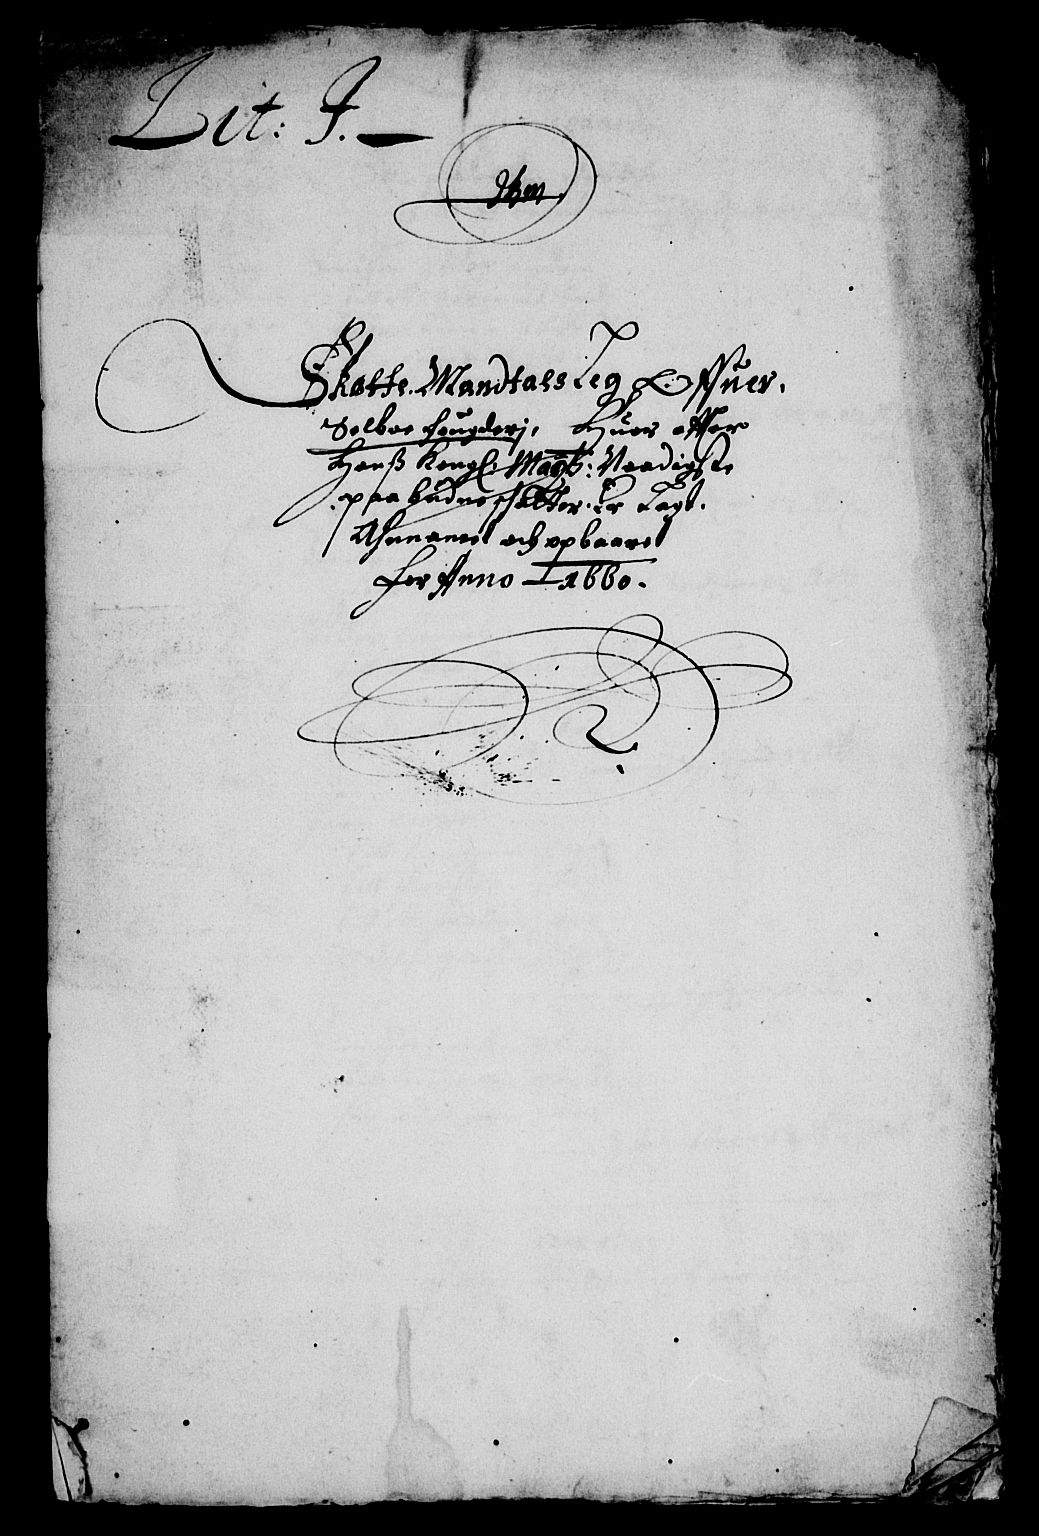 Lit: J.
Skatte Mandtals Leg Offuer
Selboe fougderj, Huor effter
Hanß Kongl: Maÿtz: Naadigste
paabudne schatter. Er Lagt.
Annamet och opbaaret
for Anno 1660.